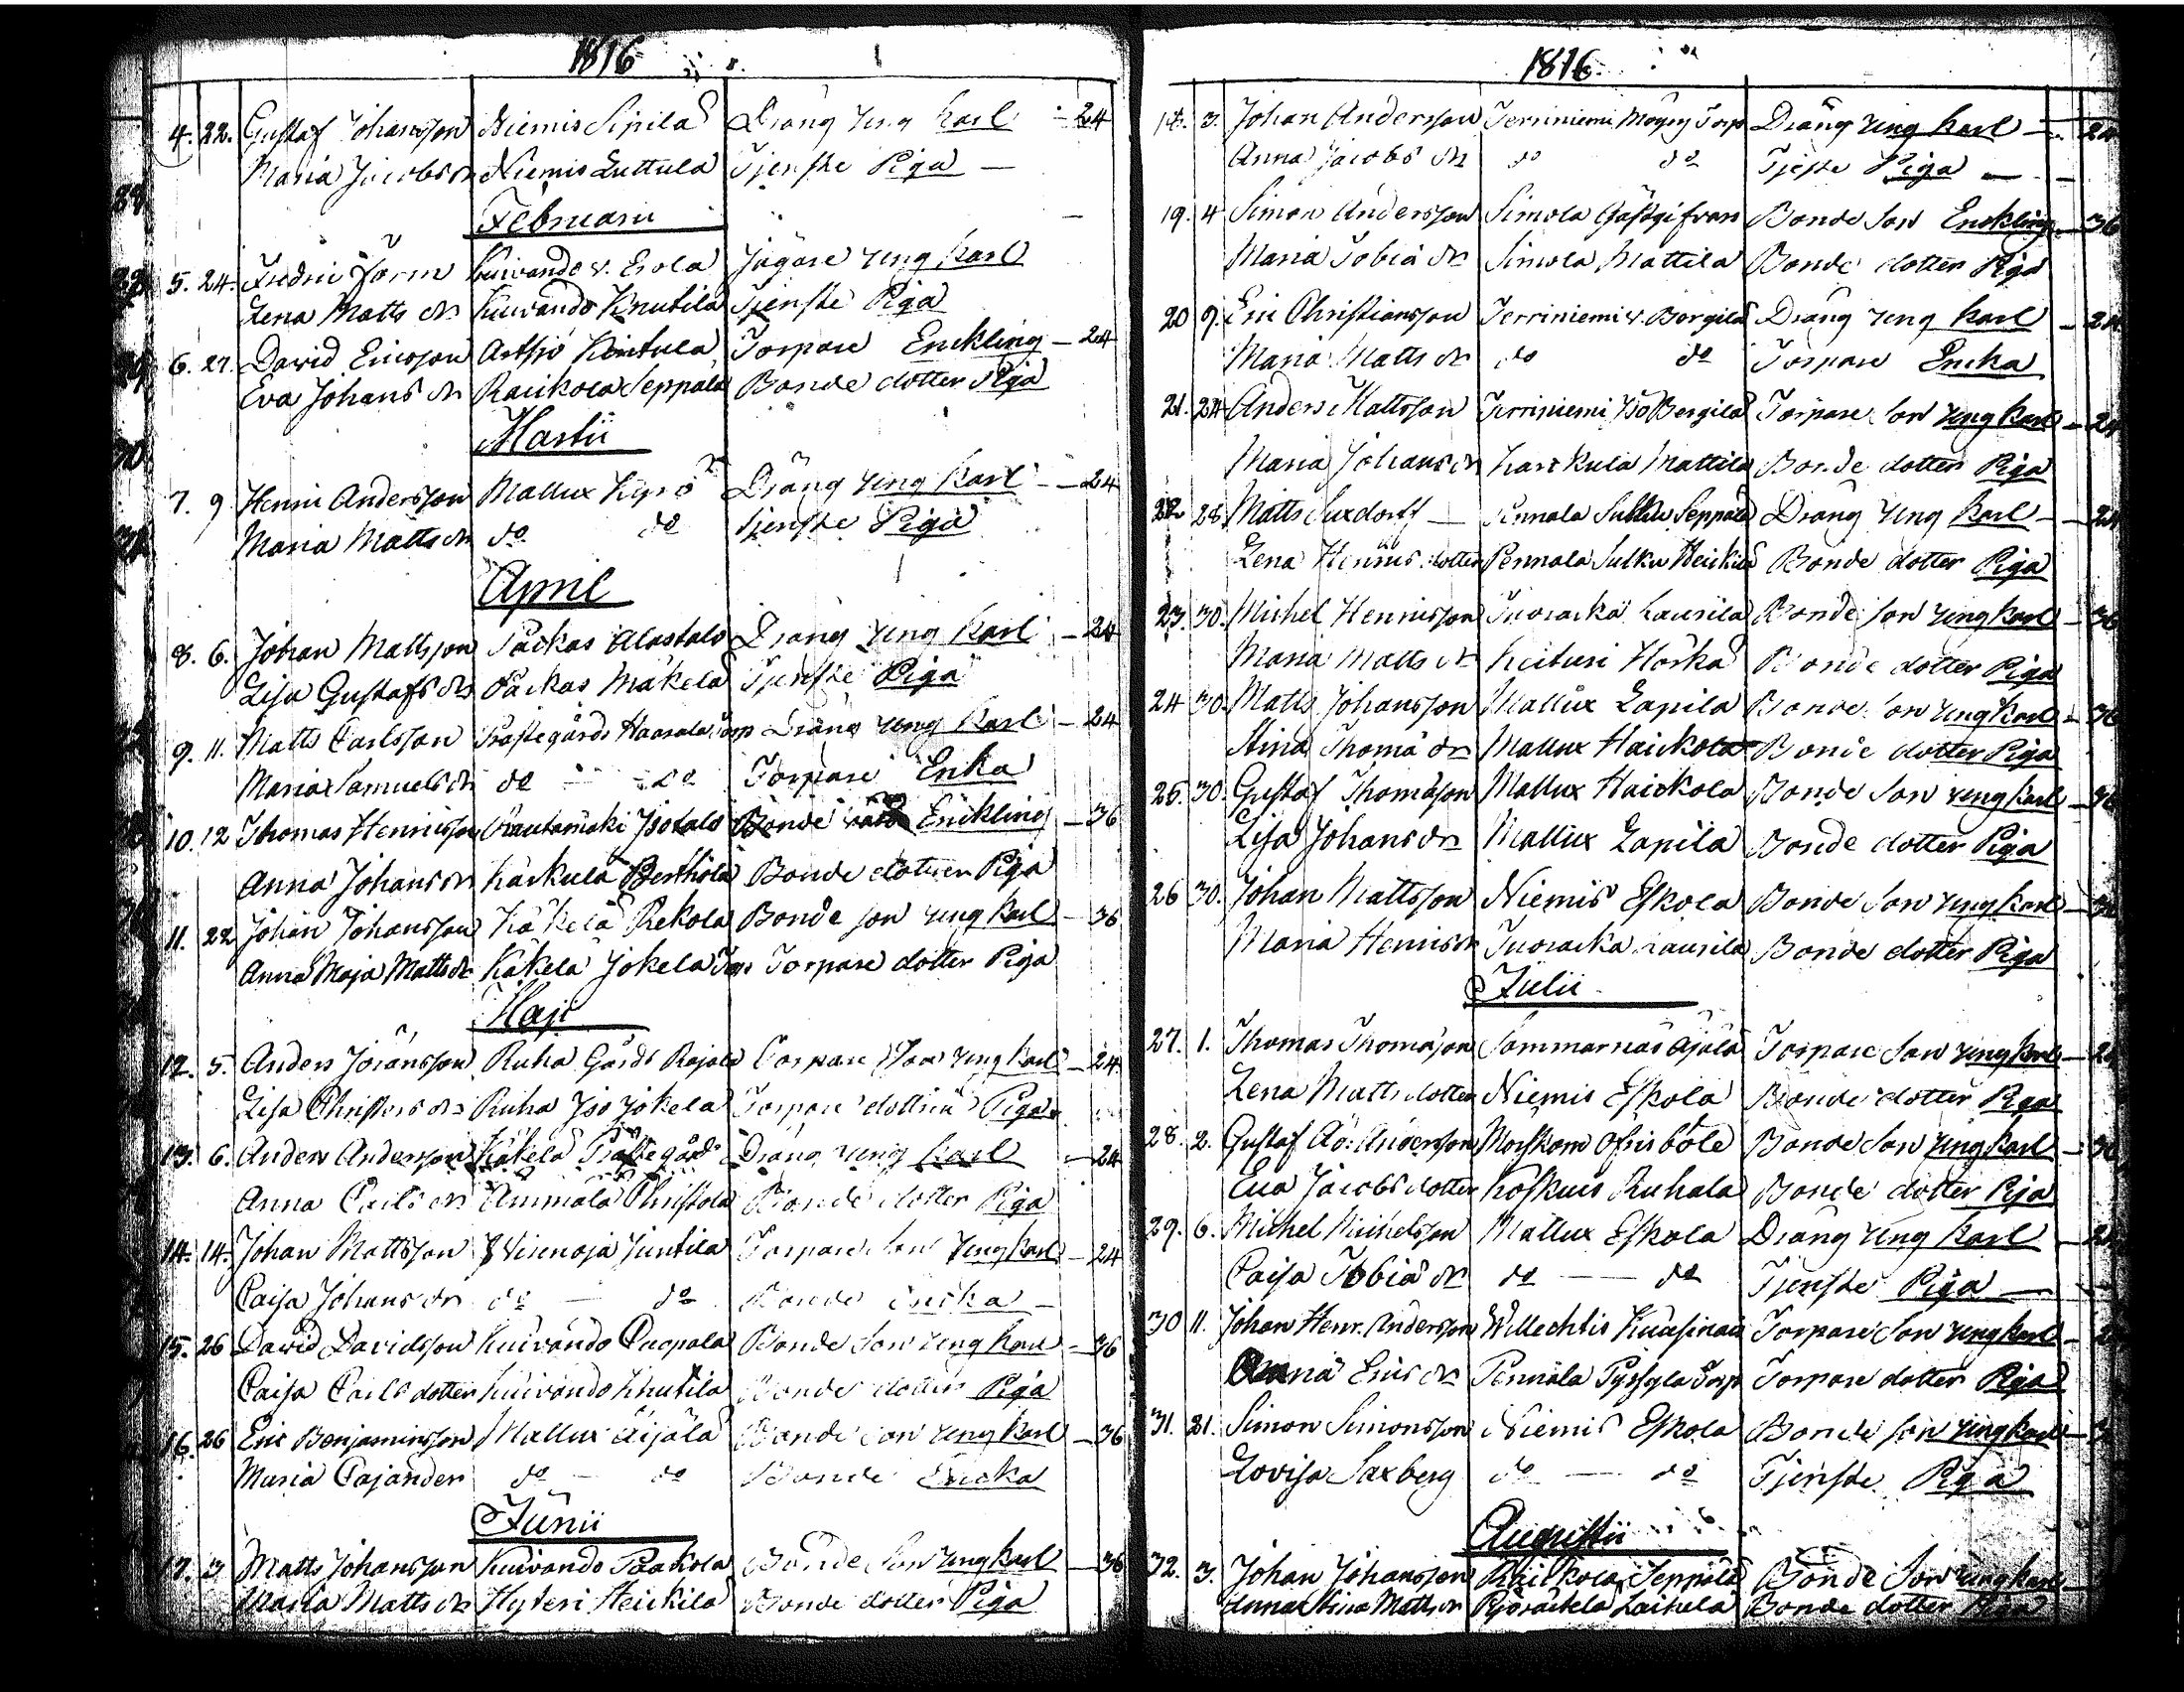 1816
4. 22. Gustaf Johansson Niemis Sipilä Dräng Ung Karl - 24
Maria Jacobs dr Niemis Luttula Tjenste Piga —
Februarii
5. 24. Fredric Form Kuivando v. Erola Jägare Ung Karl
Lena Matts dr Kuivando Knutila Tjenste Piga
6. 27. David Ericsson Artsjö Kentula Torpare Enckling - 24
Eva Johans dr Raickola Seppälä Bonde dotter Piga
Martii
7. 9 Henric Andersson Mallux Kyrö Dräng Ung Karl - 24
Maria Matts dr do do Tjenste Piga
April
8. 6. Johan Mattsson Packas Alastalo Dräng Ung Karl - 24
Lisa Gustafs dr Packas Mäkelä Tjenste Piga
9. 11. Matts Carlsson Prästegårds Haarala Torp Dräng Ung Karl - 24
Maria Samuels dr do do Torpare Enka
10. 12 Thomas Henricsson Rautamäki Isotalo Bonde Enckling - 36
Anna Johans dr Karkula Berthila Bonde dotter Piga
11. 22 Johan Johansson Käkelä Rekola Bonde son Ung Karl - 36
Anna Maja Matts dr Käkelä Jokela Torp Torpare dotter Piga
Maji
12. 5. Anders Jöransson Ruha Gårds Rajala Torpare Son Ung Karl - 24
Lisa Christers dr Ruha Iso Jokela Torpare dotter Piga
13. 6. Anders Andersson Käkelä Prästegård Dräng Ung Karl - 24
Anna Carls dr Ammälä Christola Bonde dotter Piga
14. 14. Johan Mattsson Wirenoja Juntila Torpare Son Ung Karl - 24
Caisa Johans dr do — do Bonde Encka —
15. 26 David Davidsson Kuivando Puopola Bonde Son Ung Karl - 36
Caisa Carls dotter Kuivando Knutila Bonde dotter Piga
16. 26 Eric Benjaminsson Mallux Äijälä Bonde Son Ung Karl - 36
Maria Cajander do — do Bonde Encka
Junii
17. 3 Matts Johansson Kuivando Paakola Bonde Son Ung Karl - 36
Maria Matts dr Hyteri Heickilä Bonde dotter Piga
1816.
18. 3. Johan Andersson Terriniemi Torp Dräng Ung Karl - 24
Anna Jacobs dr do do Tjeste Piga —
19. 4 Simon Andersson Simola Bonde Son Enckling - 36
Maria Tobiä dr Simola Mattila Bonde dotter Piga
20 9. Eric Christiansson Terriniemi v. Borgilä Dräng Ung Karl - 24
Maria Matts dr do do Torpare Encka
21. 24 Anders Mattsson Terriniemi Iso Bergilä Torpare Son Ung Karl - 24
Maria Johans dr Karkula Mattila Bonde dotter Piga
22 28 Matts Suxdorff — Pennala Sulku Seppälä Dräng Ung Karl - 24
Lena Henrics dotter Pennala Sulku Heickilä Bonde dotter Piga
23. 30. Michel Henricsson Tuoracka Laurila Bonde Son Ung Karl - 36
Maria Matts dr Keituri Horka Bonde dotter Piga
24 30. Matts Johansson Mallux Lapila Bonde Son Ung Karl - 36
Stina Thomä dr Mallux Haickola Bonde dotter Piga
25. 30. Gustaf Thomasson Mallux Haickola Bonde Son Ung Karl - 36
Lisa Johans dr Mallux Lapila Bonde dotter Piga
26 30. Johan Mattsson Niemis Eskola Bonde Son Ung Karl
Maria Henrics dr Tuoracka Laurila Bonde dotter Piga
Julii
27. 1. Thomas Thomasson Sommarnäs Äjälä Torpare Son Ung Karl - 24
Lena Matts dotter Niemis Eskola Bonde dotter Piga
28. 2. Gustaf Ad: Andersson Morskom Ofvisböle Bonde Son Ung Karl - 36
Eva Jacobs dotter Koskuis Ruhala Bonde dotter Piga
29. 6. Michel Michelsson Mallux Eskola Dräng Ung Karl
Caisa Tobiä dr do — do Tjenste Piga —
30 11. Johan Henr. Andersson Willechtis Torpare Son Ung Karl
Anna Erics dr Pennala Torp Torpare dotter Piga
31. 21. Simon Simonsson Niemis Eskola Bonde Son Ung Karl
Lovisa Saxberg do — do Tjenste Piga
Augustii
32. 3. Johan Johansson Raickola Seppälä Bonde Son Ung Karl
Anna Stina Matts dr Laikula Bonde dotter Piga